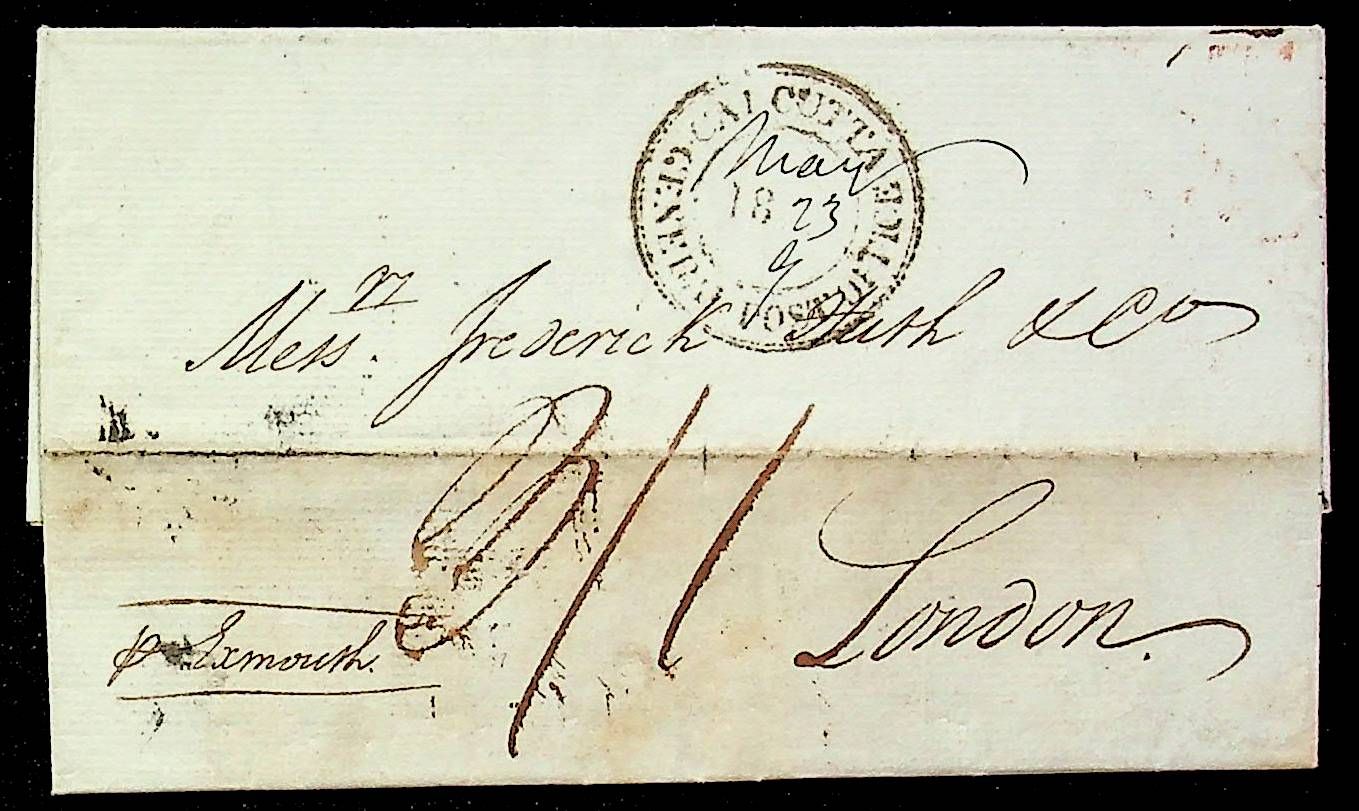 CALCUTTA GENERAL POST OFFICE
May
18 23
9
Messrs. Frederick Huth & Co
3/1
London.
pr Exmouth.